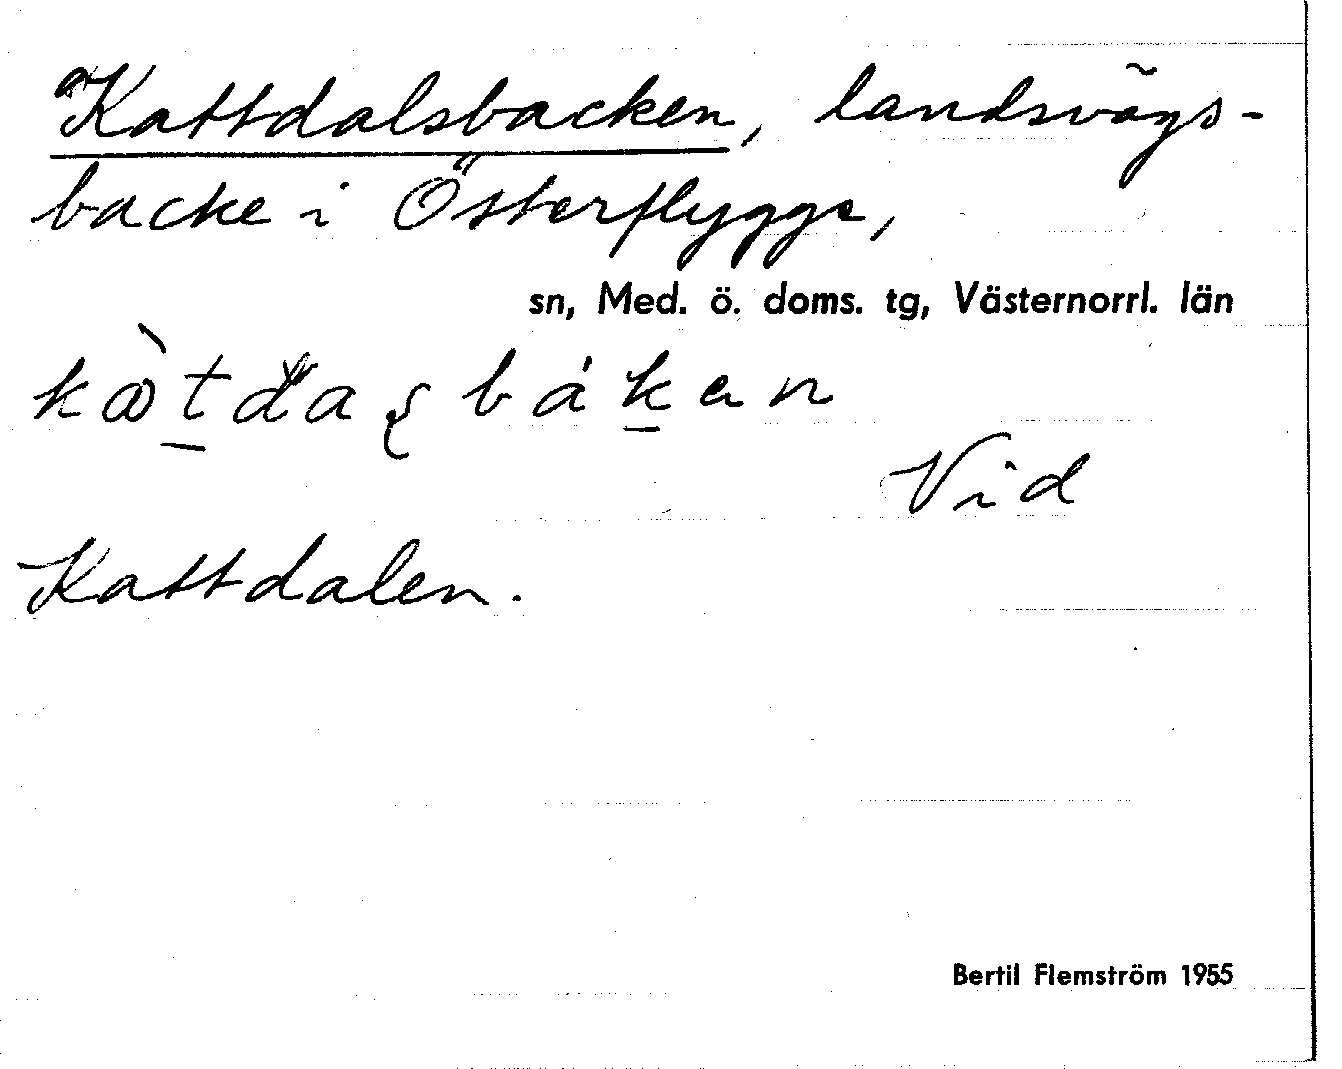 Kattdalsbacken, landsvägs-
backe i Österflygge,
sn, Med. ö. doms. tg, Västernorrl. län
Vid
Kattdalen.
Bertil Flemström 1955